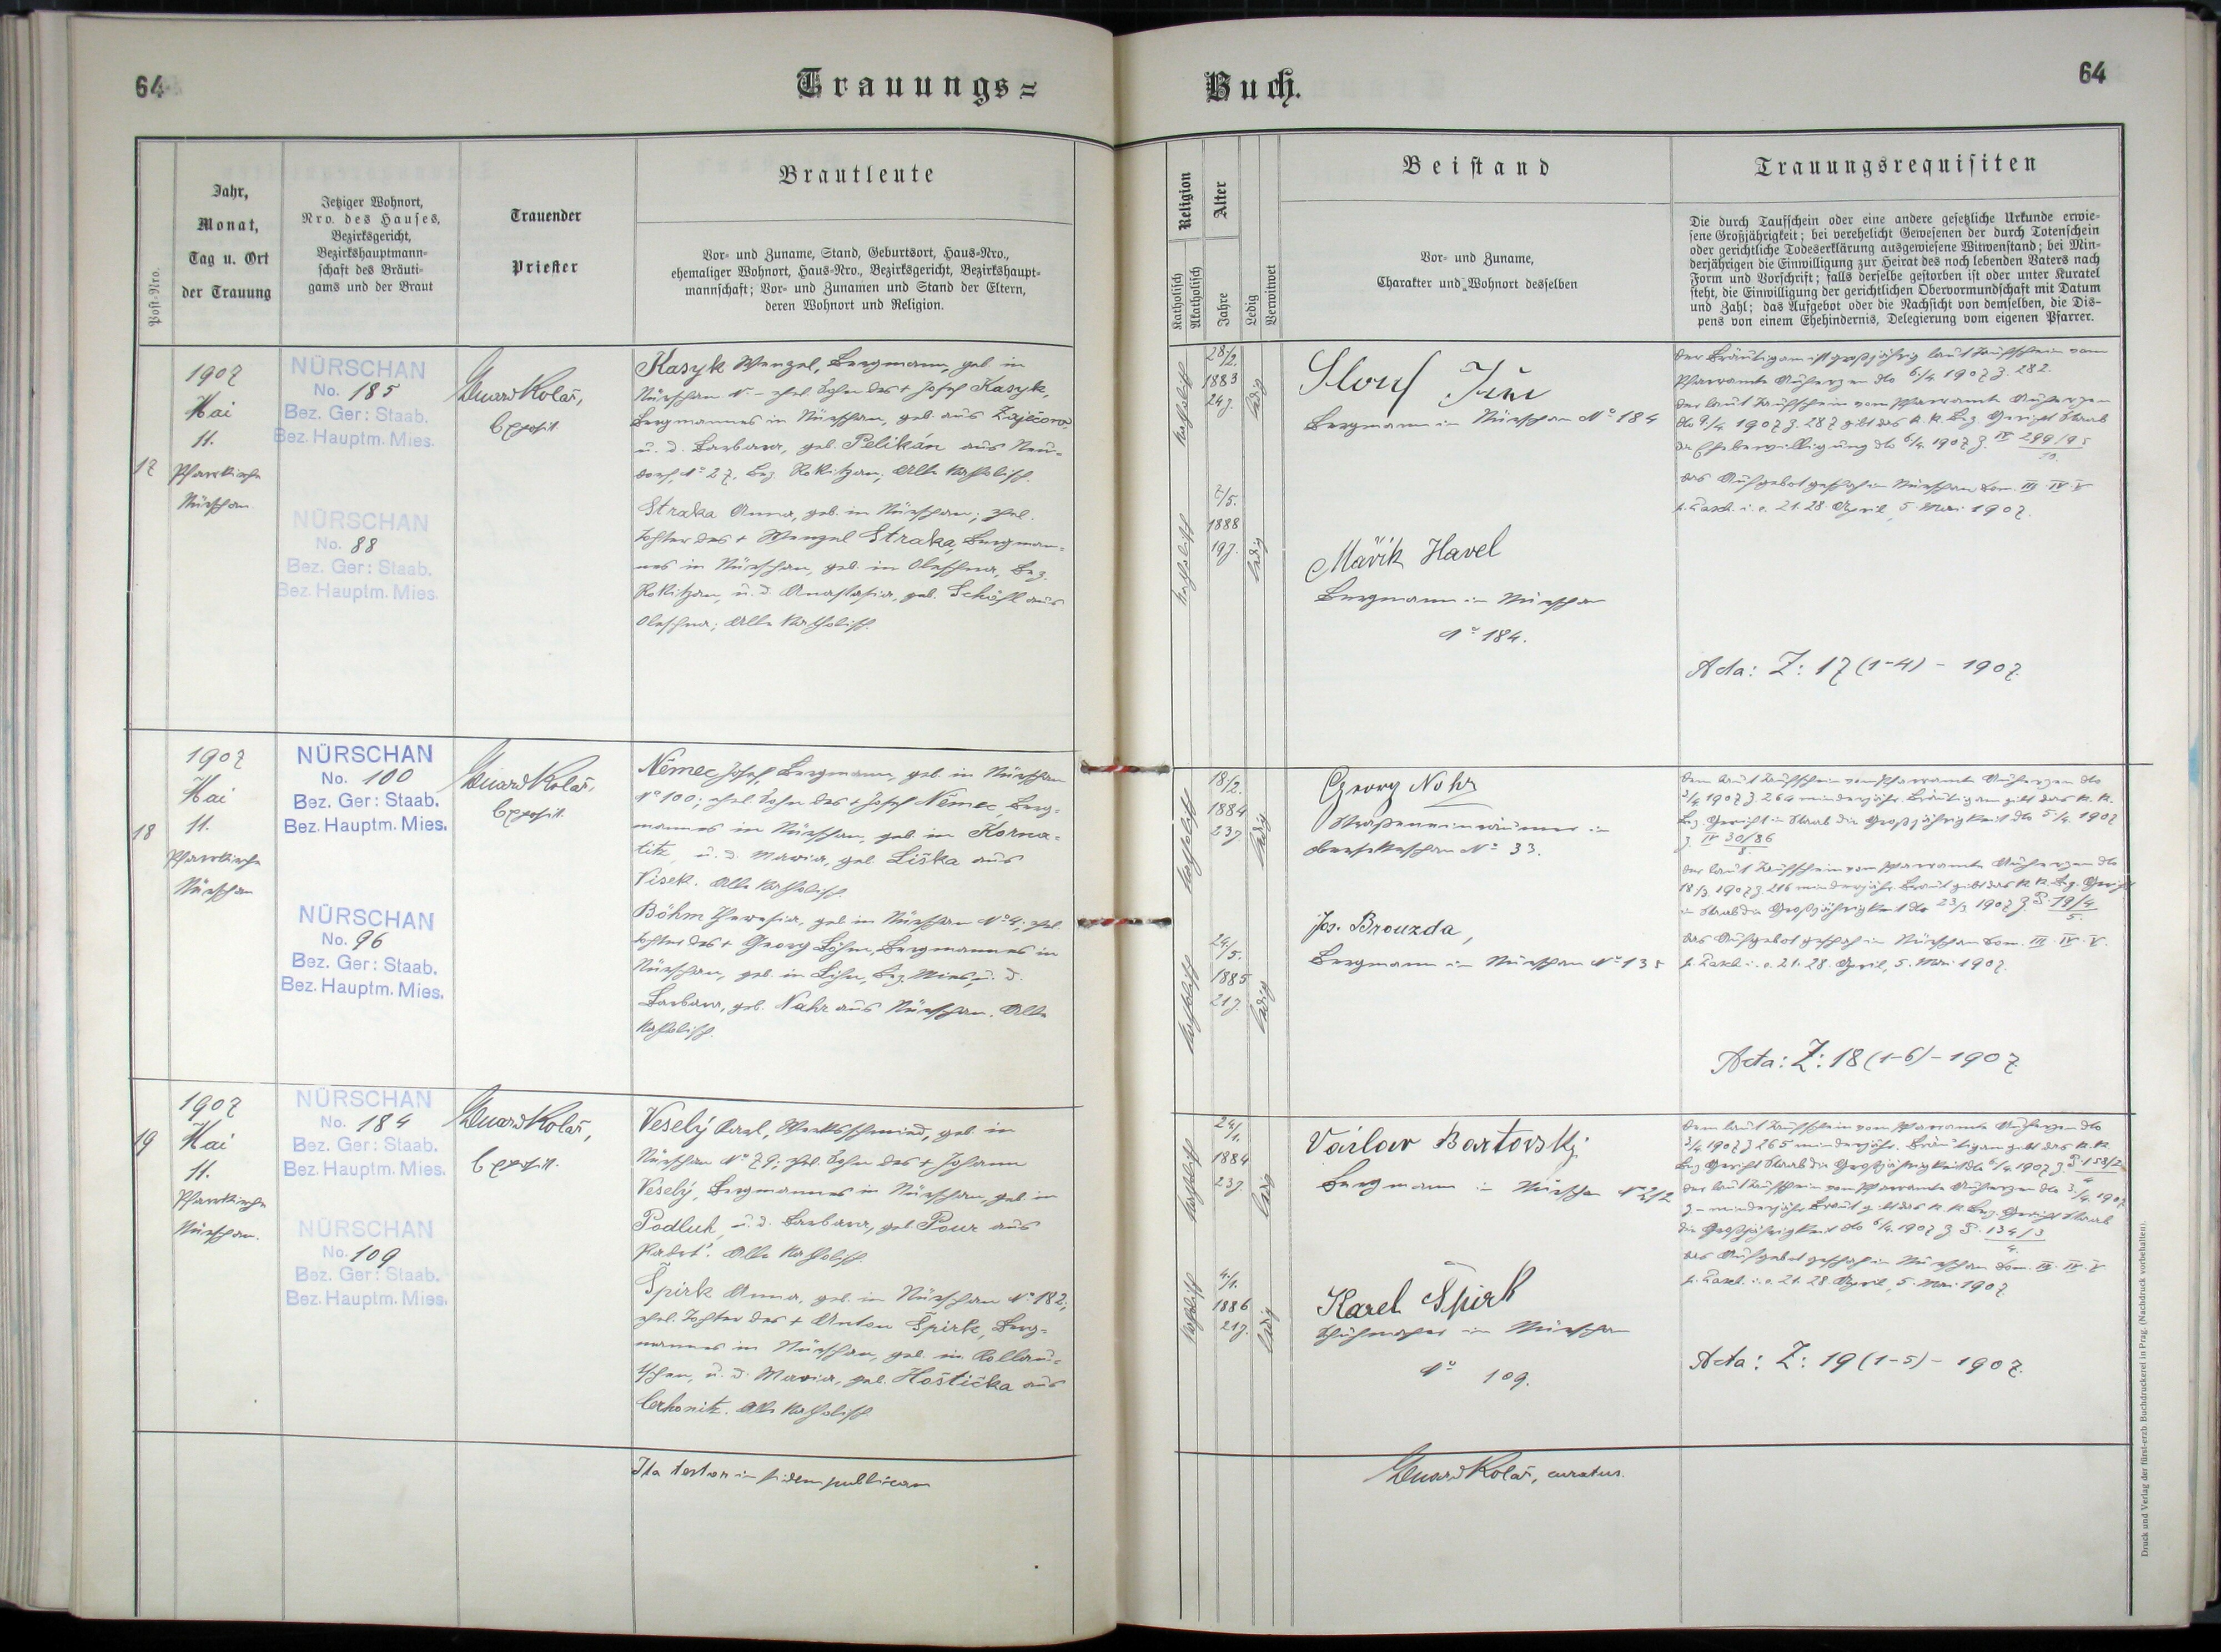 64
Trauungs=
Jahr,
Monat,
Tag u. Ort
der Trauung
Post-Nro.
Jetziger Wohnort,
Nro. des Hauses,
Bezirksgericht,
Bezirkshauptmann=
schaft des Bräuti=
gams und der Braut
Trauender
Priester
Brautleute
Vor= und Zuname, Stand, Geburtsort, Haus=Nro.,
ehemaliger Wohnort, Haus=Nro., Bezirksgericht, Bezirkshaupt=
mannschaft; Vor= und Zunamen und Stand der Eltern,
deren Wohnort und Religion.
17
1907
Mai
11.
Pfarrkirche
Nürschan.
NÜRSCHAN
No. 185
Bez. Ger: Staab.
Bez. Hauptm. Mies.
NÜRSCHAN
No. 88
Bez. Ger: Staab.
Bez. Hauptm. Mies.
Eduard Kolář,
Exposit.
Kasyk Wenzel, Bergmann, geb. in
Nürschan N. – ehel. Sohn des + Josef Kasyk,
Bergmannes in Nürschan, geb. aus Zaječova
u. d. Barbara, geb. Pelikán aus Neu=
dorf, No 27, Bez. Rokitzan; Alle katholisch.
Straka Anna, geb. in Nürschan; ehel.
Tochter des + Wenzel Straka, Bergman=
nes in Nürschan, geb. in Oleschna, Bez.
Rokitzan, u. d. Anastasia, geb. Schößl aus
Oleschna; Alle katholisch.
18
1907
Mai
11.
Pfarrkirche
Nürschan
NÜRSCHAN
No. 100
Bez. Ger: Staab.
Bez. Hauptm. Mies.
NÜRSCHAN
No. 96
Bez. Ger: Staab.
Bez. Hauptm. Mies.
Eduard Kolář,
Exposit.
Němec Josef Bergmann, geb. in Nürschan
No 100; ehel. Sohn des + Josef Němec, Berg=
mannes in Nürschan, geb. in Korna=
titz, u. d. Maria, geb. Liška aus
Visek. Alle katholisch.
Böhm Theresia, geb. in Nürschan No 4; ehel.
Tochter des + Georg Böhm, Bergmannes in
Nürschan, geb. in Bez. Mies, u. d.
Barbara, geb. Nahr aus Nürschan. Alle
katholisch.
19
1907
Mai
11.
Pfarrkirche
Nürschan.
NÜRSCHAN
No. 184
Bez. Ger: Staab.
Bez. Hauptm. Mies.
NÜRSCHAN
No. 109
Bez. Ger: Staab.
Bez. Hauptm. Mies.
Eduard Kolář,
Exposit.
Veselý Karl, Werksschmied, geb. in
Nürschan No 79; ehel. Sohn des + Johann
Veselý, Bergmannes in Nürschan, geb. in
Podluh, u. d. Barbara, geb. Pour aus
Padrt'. Alle katholisch.
Špirk Anna, geb. in Nürschan No 182;
ehel. Tochter des + Anton Špirk, Berg=
mannes in Nürschan, geb. in Rollau=
tschen, u. d. Maria, geb. Hostička aus
Cerhonitz. Alle katholisch.
Ita testor in fidem publicam
Buch.
64
Religion
Katholisch
Akatholisch
Alter
Jahre
Ledig
Verwitwet
Beistand
Vor= und Zuname,
Charakter und Wohnort desselben
Trauungsrequisiten
Die durch Taufschein oder eine andere gesetzliche Urkunde erwie=
sene Großjährigkeit; bei verehelicht Gewesenen der durch Totenschein
oder gerichtliche Todeserklärung ausgewiesene Witwenstand; bei Min=
derjährigen die Einwilligung zur Heirat des noch lebenden Vaters nach
Form und Vorschrift; falls derselbe gestorben ist oder unter Kuratel
steht, die Einwilligung der gerichtlichen Obervormundschaft mit Datum
und Zahl; das Aufgebot oder die Nachsicht von demselben, die Dis=
pens von einem Ehehindernis, Delegierung vom eigenen Pfarrer.
katholisch
28/2.
1883
24J.
ledig
katholisch
2/5.
1888
19J.
ledig
Slouf
Bergmann in Nürschan No 184
Mařík Havel
Bergmann in Nürschan
No 184.
Der Bräutigam ist großjährig laut Taufschein vom
Pfarramte Auherzen dto 6/4 1907 Z. 282.
Der laut Taufschein vom Pfarramte Auherzen
dto 9/4 1907 Z. 287 gibt das k. k. Bez. Gericht Staab
die Ehebewilligung dto 6/4 1907 Z. IV 299/95
10.
Das Aufgebot geschah in Nürschan Dom. III. IV. V
p. Pasch. i. e. 21. 28. April, 5. Mai 1907.
Acta: Z: 17 (1-4) - 1907.
katholisch
18/2.
1884
23J.
ledig
katholisch
24/5.
1885
21J.
ledig
Georg Nohr
Straßeneinräumer in
No 33.
Jos. Brouzda,
Bergmann in Nürschan No 135
Dem laut Taufschein vom Pfarramte Auherzen dto
3/4 1907 Z. 264 minderjähr. Bräutigam gibt das k. k.
Bez. Gericht in Staab die Großjährigkeit dto 5/4 1907
Z. IV 30/86
8.
Der laut Taufschein vom Pfarramte Auherzen dto
18/3 1907 Z. 216 minderjähr. Braut gibt das k. k. Bez. Gericht
in Staab die Großjährigkeit dto 23/3 1907 Z. P. 19/4
5.
Das Aufgebot geschah in Nürschan Dom. III. IV. V.
p. Pasch. i. e. 21. 28. April, 5. Mai 1907.
Acta: Z: 18 (1-6) - 1907.
katholisch
24/1.
1884
23J.
ledig
katholisch
4/1.
1886
21J.
ledig
Václav Bartovský
Bergmann in Nürschan
Karel Špirk
Schuhmacher in Nürschan
No 109.
Dem laut Taufschein vom Pfarramte Auherzen dto
3/4 1907 Z 265 minderjähr. Bräutigam gibt das k. k.
Bez. Gericht Staab die Großjährigkeit dto 6/4 1907 Z P. 158/2
4
Der laut Taufschein vom Pfarramte Auherzen dto 3/4 1907
Z – minderjähr. Braut gibt das k. k. Bez. Gericht Staab
die Großjährigkeit dto 6/4 1907 Z P. 134/3
4.
Das Aufgebot geschah in Nürschan Dom. III. IV. V
p. Pasch. i. e. 21. 28. April, 5. Mai 1907.
Acta: Z: 19 (1-5) - 1907.
Eduard Kolář, curatus.
Druck und Verlag der fürst-erzb Buchdruckerei in Prag. (Nachdruck vorbehalten).